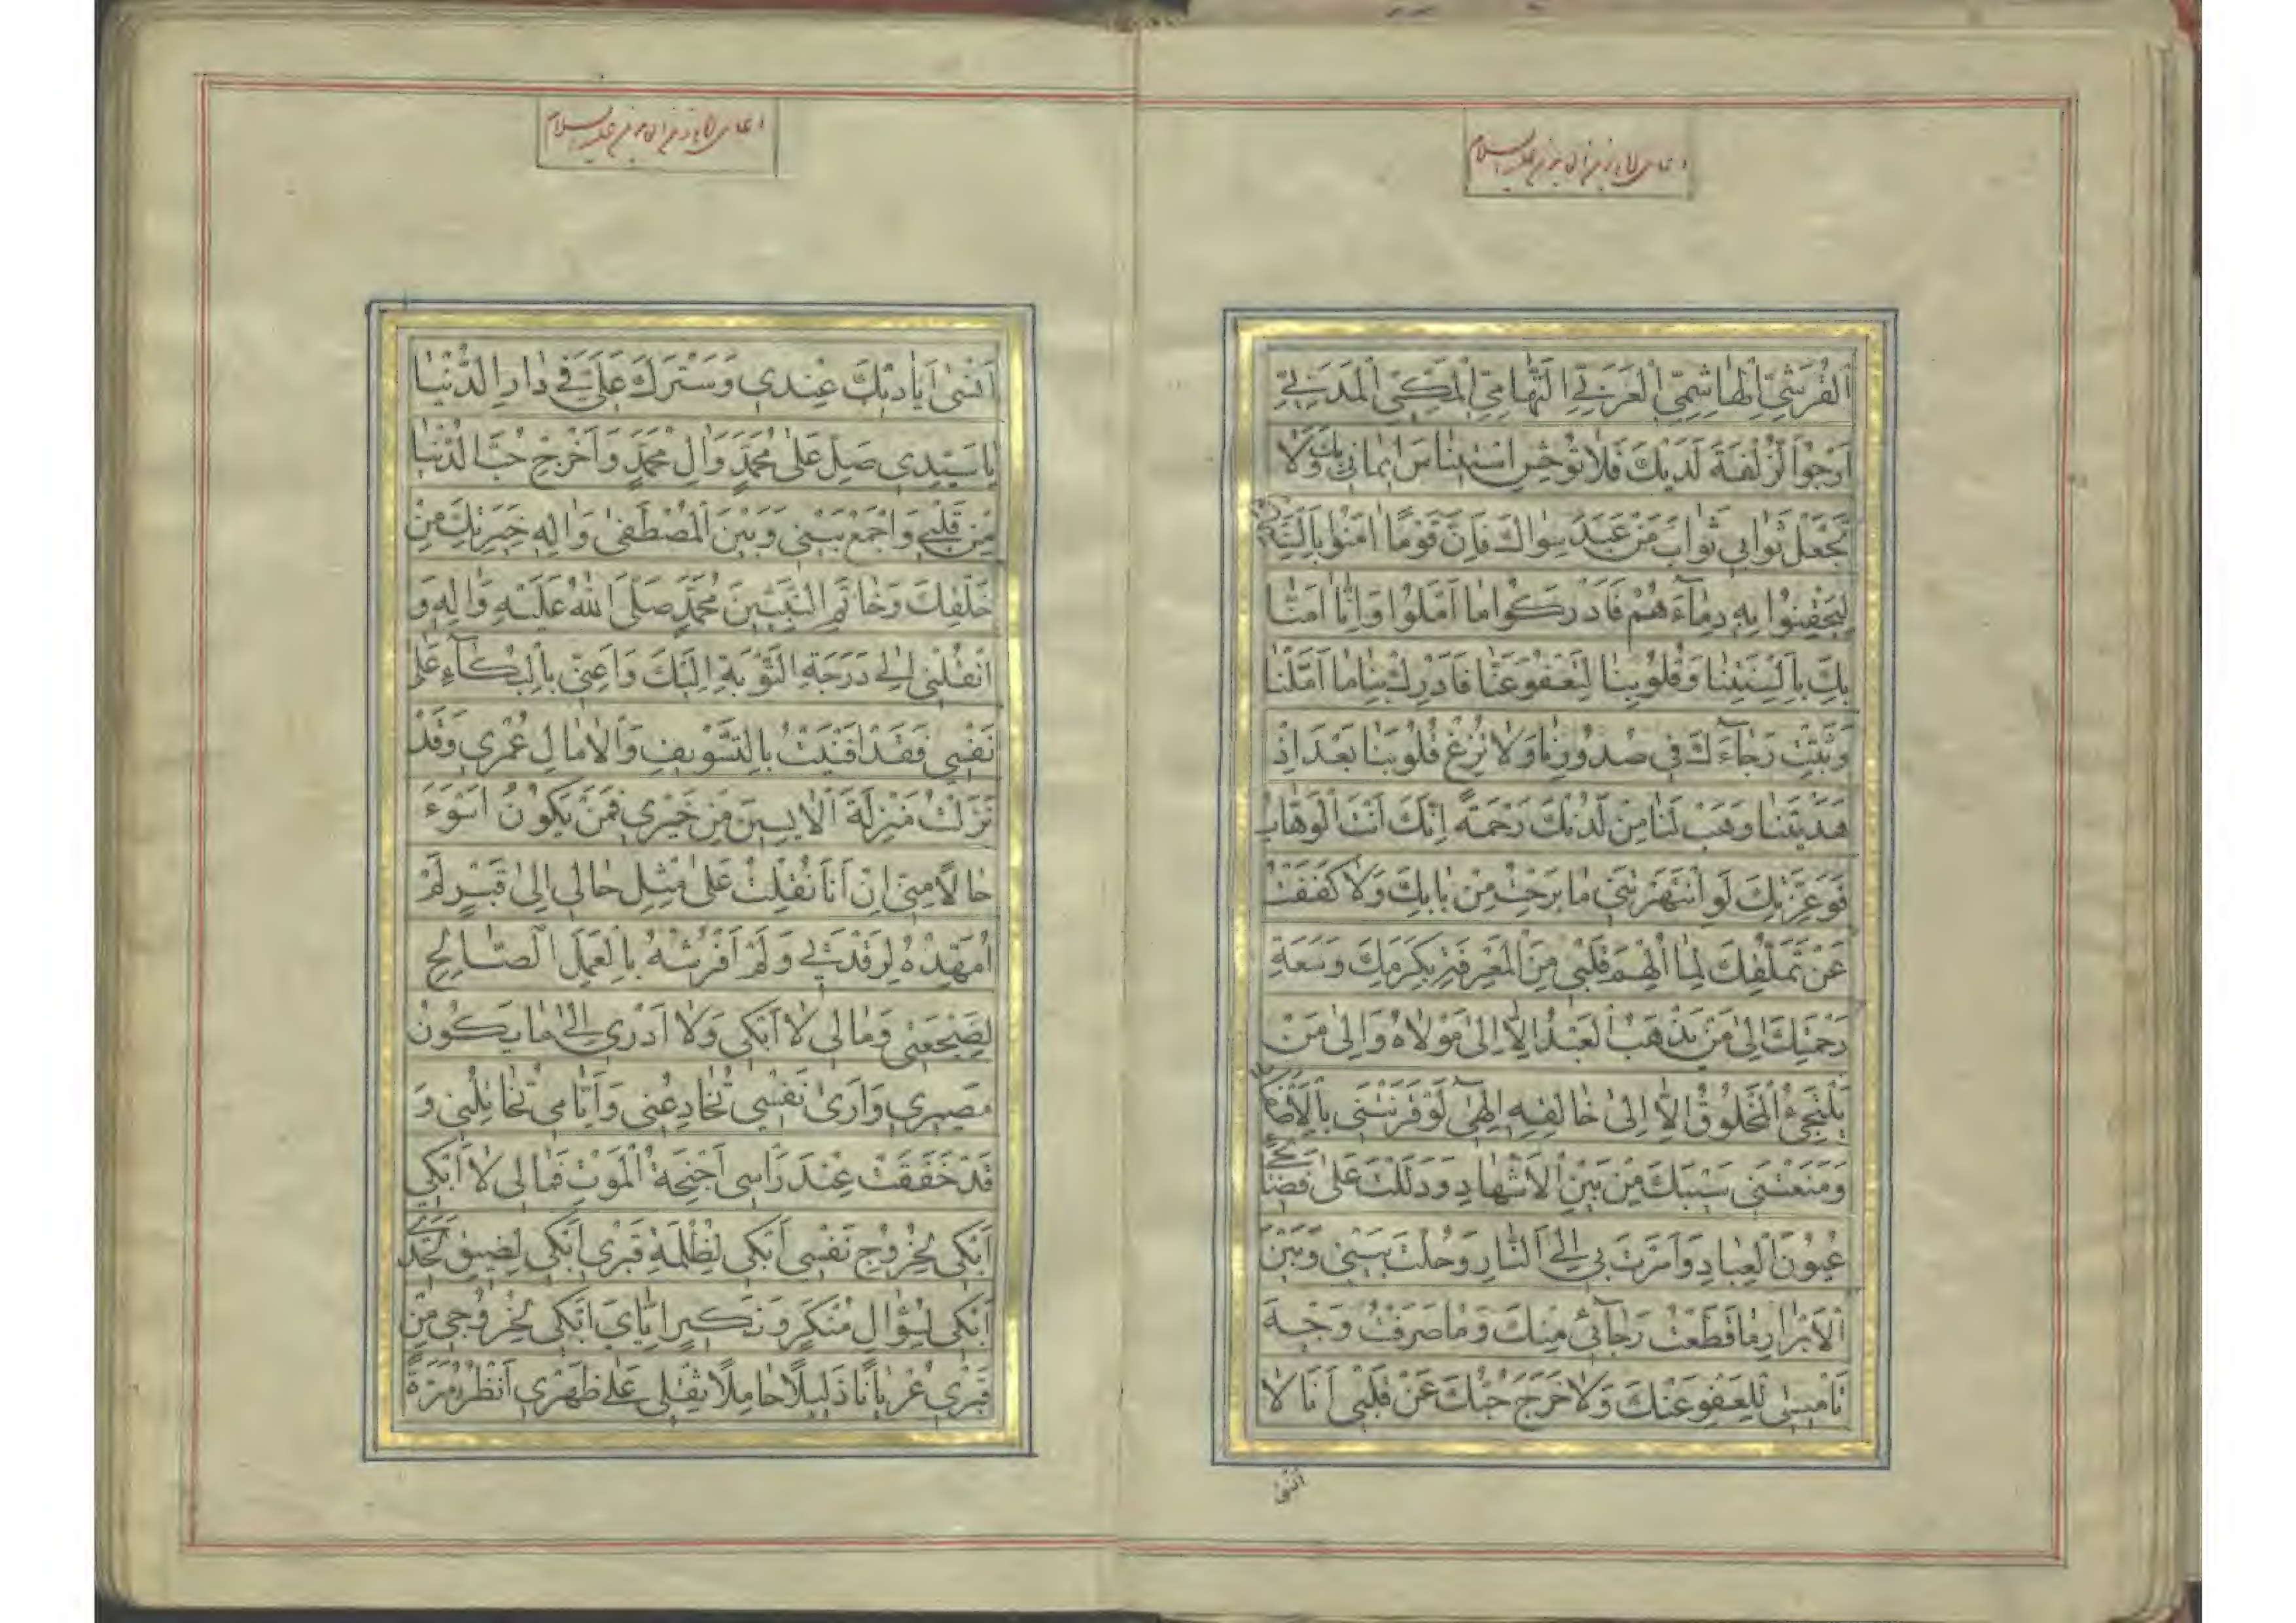 اَلْقُرَشِيِّ الْهٰاشِمِيِّ الْعَرَبِيِّ التَّهٰامِيِّ الْمَكِّيِّ الْمَدَنِيِّ
اَرْجُوا الزُّلْفَةَ لَدَيْكَ فَلاٰ تُوحِشِ اسْتِينٰاسَ ايمٰانِي بِكَ وَلاٰ
تَجْعَلْ ثَوٰابِي ثَوٰابَ مَنْ عَبَدَ سِوٰاكَ فَاِنَّ قَوْمًا اٰمَنُوا بِاَلْسِنَتِهِمْ
لِيَحْقِنُوا بِهِ دِمٰآءَهُمْ فَاَدْرَكُوا مٰا اَمَّلُوا وَاِنّٰا اٰمَنّٰا
بِكَ بِاَلْسِنَتِنٰا وَقُلُوبِنٰا لِتَعْفُوَ عَنّٰا فَاَدْرِكْ بِنٰا مٰا اَمَّلْنٰا
وَثَبِّتْ رَجٰآءَكَ فِي صُدُورِنٰا وَلاٰ تُزِغْ قُلُوبَنٰا بَعْدَ اِذْ
هَدَيْتَنٰا وَهَبْ لَنٰا مِنْ لَدُنْكَ رَحْمَةً اِنَّكَ اَنْتَ الْوَهّٰابُ
فَوَعِزَّتِكَ لَوِ انْتَهَرْتَنِي مٰا بَرِحْتُ مِنْ بٰابِكَ وَلاٰ كَفَفْتُ
عَنْ تَمَلُّقِكَ لِمٰا اُلْهِمَ قَلْبِي مِنَ الْمَعْرِفَةِ بِكَرَمِكَ وَسَعَةِ
رَحْمَتِكَ اِلىٰ مَنْ يَذْهَبُ الْعَبْدُ اِلاّٰ اِلىٰ مَوْلاٰهُ وَاِلىٰ مَنْ
يَلْتَجِيُ الْمَخْلُوقُ اِلاّٰ اِلىٰ خٰالِقِهِ اِلٰهِي لَوْ قَرَنْتَنِي بِالْاَصْفٰادِ
وَمَنَعْتَنِي سَيْبَكَ مِنْ بَيْنِ الْاَشْهٰادِ وَدَلَلْتَ عَلىٰ فَضٰائِحِي
عُيُونَ الْعِبٰادِ وَاَمَرْتَ بِي اِلَى النّٰارِ وَحُلْتَ بَيْنِي وَبَيْنَ
الْاَبْرٰارِ مٰا قَطَعْتُ رَجٰآئِي مِنْكَ وَمٰا صَرَفْتُ وَجْهَ
تَأْمِيلِي لِلْعَفْوِ عَنْكَ وَلاٰ خَرَجَ حُبُّكَ عَنْ قَلْبِي اَنَا لاٰ
اَنْسىٰ
اَنْسىٰ اَيٰادِيَكَ عِنْدِي وَسَتْرَكَ عَلَيَّ فِي دٰارِ الدُّنْيٰا
يٰا سَيِّدِي صَلِّ عَلىٰ مُحَمَّدٍ وَاٰلِ مُحَمَّدٍ وَاَخْرِجْ حُبَّ الدُّنْيٰا
مِنْ قَلْبِي وَاجْمَعْ بَيْنِي وَبَيْنَ الْمُصْطَفىٰ وَاٰلِهِ خِيَرَتِكَ مِنْ
خَلْقِكَ وَخٰاتَمِ النَّبِيّينَ مُحَمَّدٍ صَلَّى اللّٰهُ عَلَيْهِ وَاٰلِهِ وَ
انْقُلْنِي اِلىٰ دَرَجَةِ التَّوْبَةِ اِلَيْكَ وَاَعِنِّي بِالْبُكٰآءِ عَلىٰ
نَفْسِي فَقَدْ اَفْنَيْتُ بِالتَّسْوِيفِ وَالْاٰمٰالِ عُمْرِي وَقَدْ
نَزَلْتُ مَنْزِلَةَ الْاٰيِسِينَ مِنْ خَيْرِي فَمَنْ يَكُونُ اَسْوَءَ
حٰالاً مِنِّي اِنْ اَنَا نُقِلْتُ عَلىٰ مِثْلِ حٰالِي اِلىٰ قَبْرٍ لَمْ
اُمَهِّدْهُ لِرَقْدَتِي وَلَمْ اَفْرُشْهُ بِالْعَمَلِ الصّٰالِحِ
لِضَجْعَتِي وَمٰالِي لاٰ اَبْكِي وَلاٰ اَدْرِي اِلىٰ مٰا يَكُونُ
مَصِيرِي وَاَرىٰ نَفْسِي تُخٰادِعُنِي وَاَيّٰامِي تُخٰاتِلُنِي وَ
قَدْ خَفَقَتْ عِنْدَ رَاْسِي اَجْنِحَةُ الْمَوْتِ فَمٰالِي لاٰ اَبْكِي
اَبْكِي لِخُرُوجِ نَفْسِي اَبْكِي لِظُلْمَةِ قَبْرِي اَبْكِي لِضِيقِ لَحْدِي
اَبْكِي لِسُؤٰالِ مُنْكَرٍ وَنَكِيرٍ اِيّٰايَ اَبْكِي لِخُرُوجِي مِنْ
قَبْرِي عُرْيٰانًا ذَلِيلًا حٰامِلًا ثِقْلِي عَلىٰ ظَهْرِي اَنْظُرُ مَرَّةً